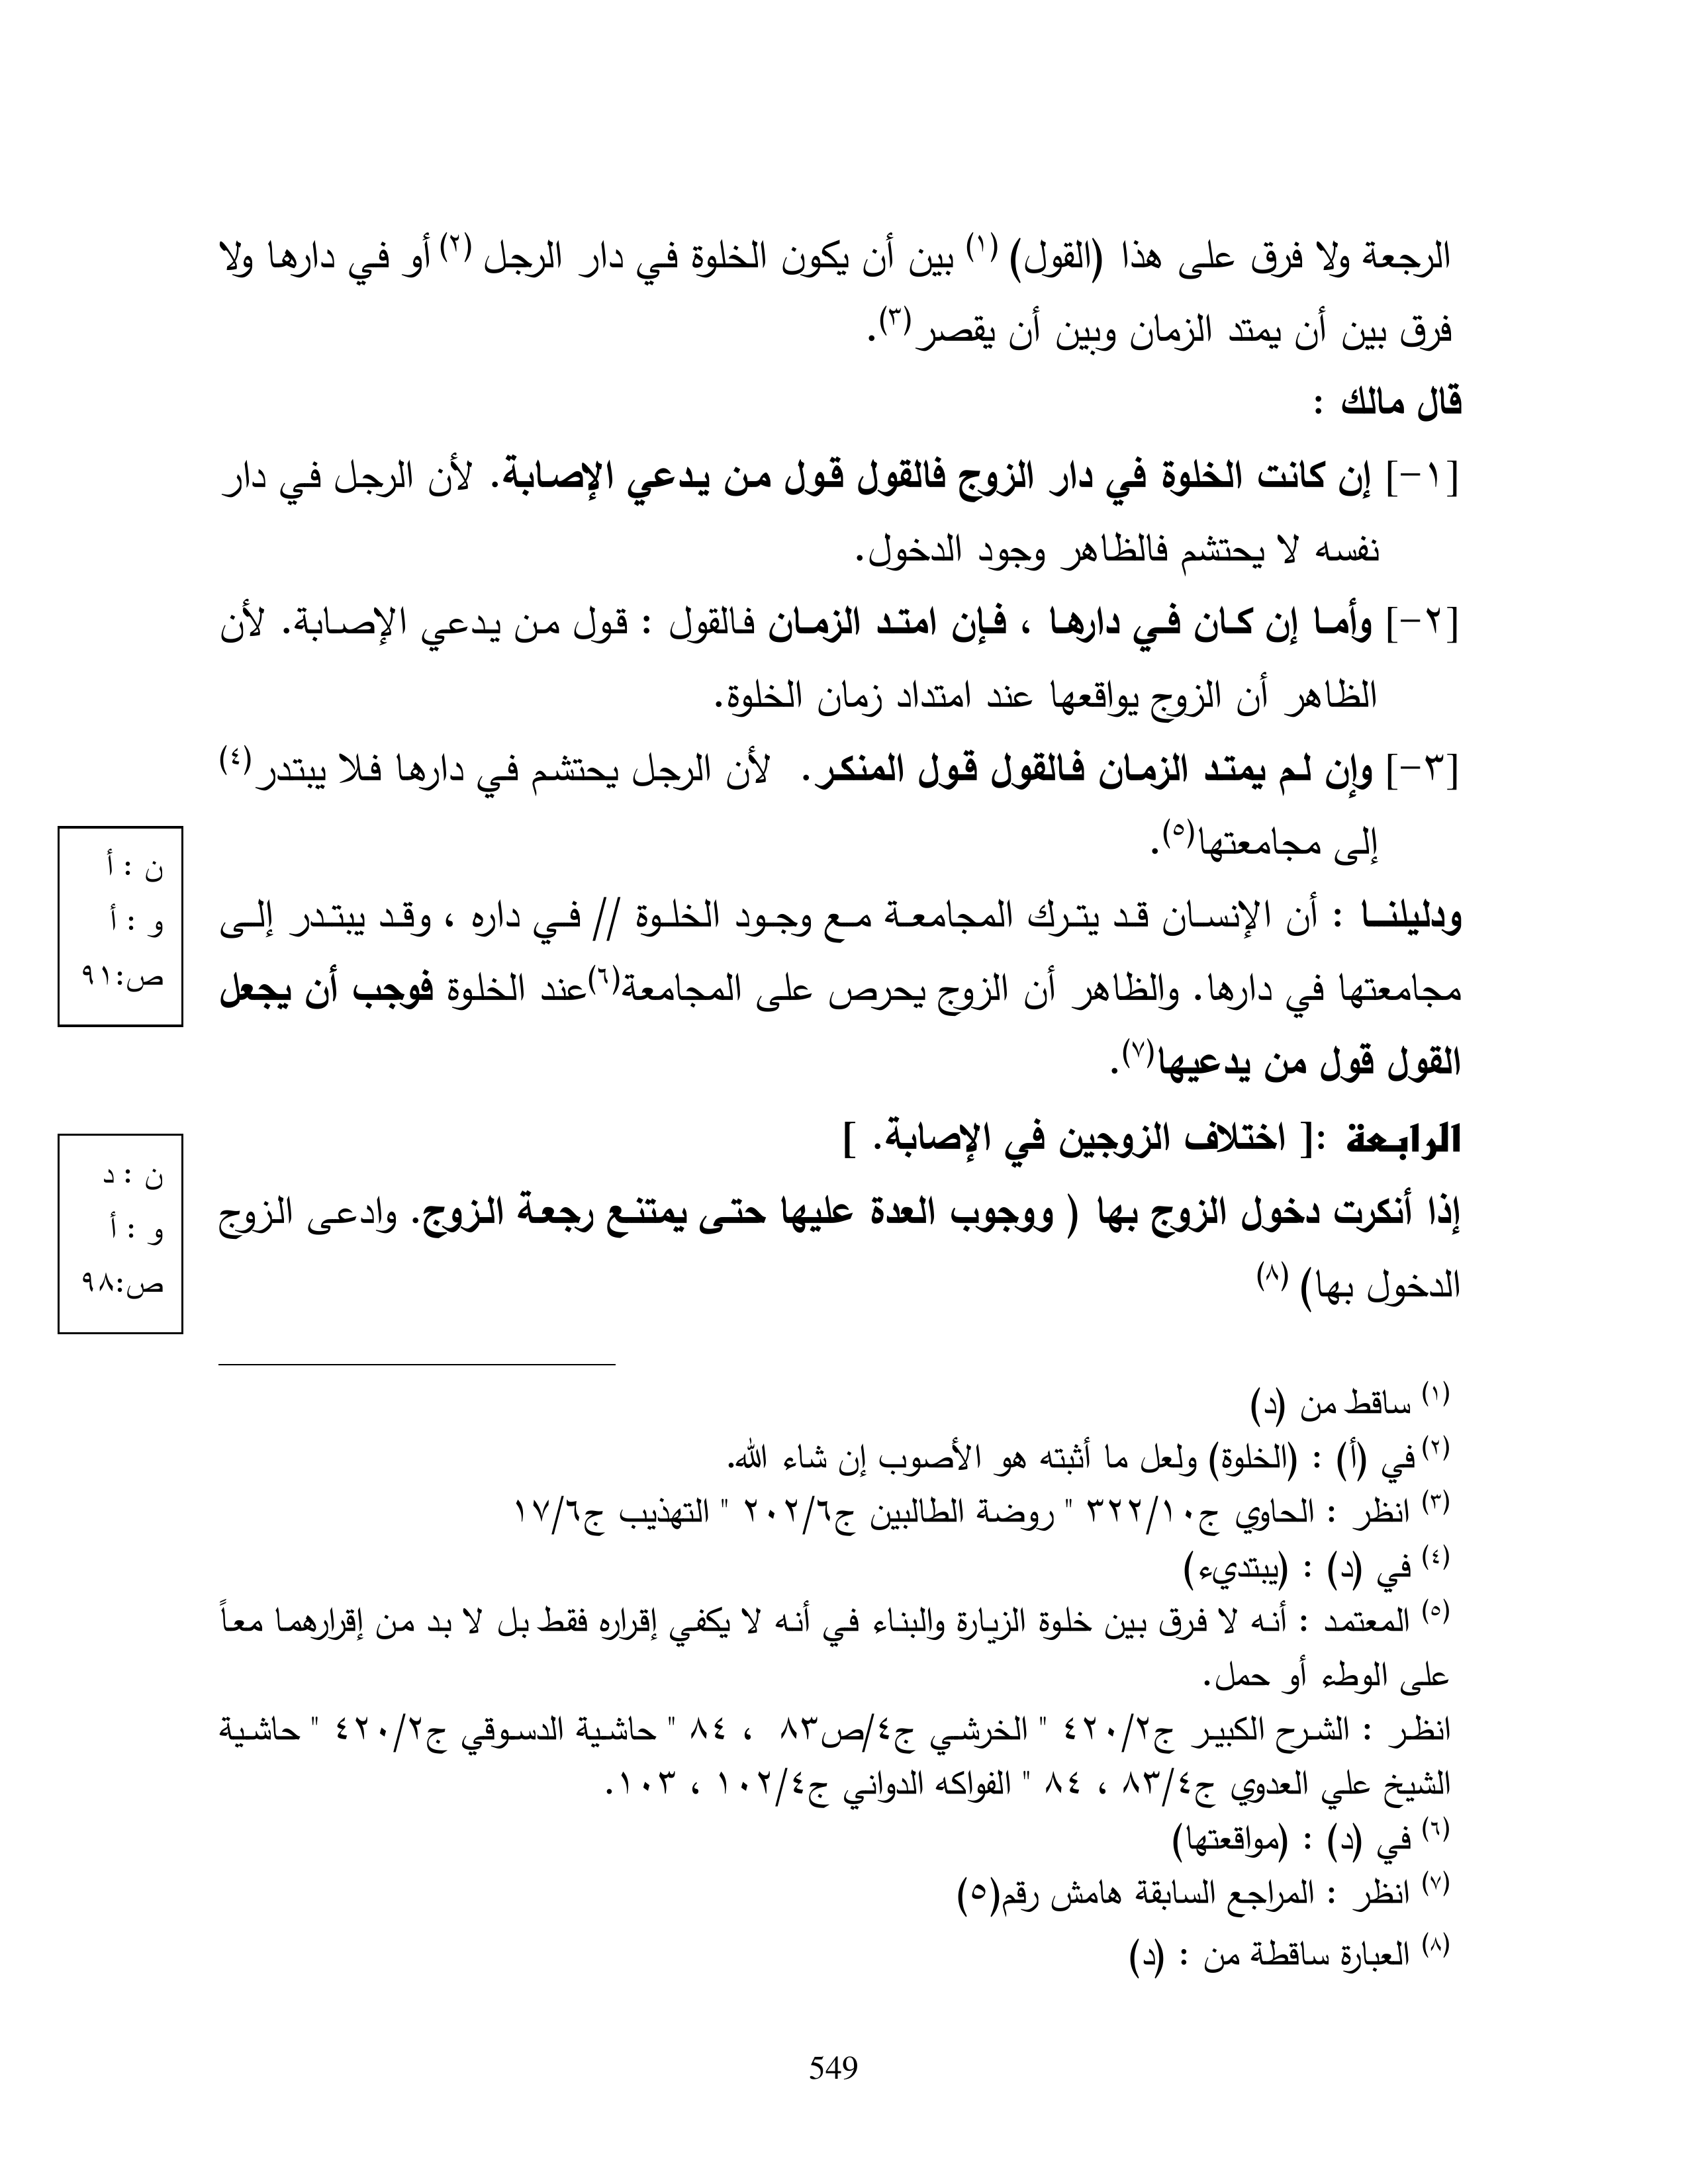 الرجعة ولا فرق على هذا (القول) (١) بين أن يكون الخلوة في دار الرجل (٢) أو في دارها ولا
فرق بين أن يمتد الزمان وبين أن يقصر (٣).
قال مالك :
[١-] إن كانت الخلوة في دار الزوج فالقول قول من يدعي الإصابة. لأن الرجل في دار
نفسه لا يحتشم فالظاهر وجود الدخول.
[٢-] وأما إن كان في دارها ، فإن امتد الزمان فالقول : قول من يدعي الإصابة. لأن
الظاهر أن الزوج يواقعها عند امتداد زمان الخلوة.
[٣-] وإن لم يمتد الزمان فالقول قول المنكر. لأن الرجل يحتشم في دارها فلا يبتدر (٤)
إلى مجامعتها(٥).
ن : أ
و : أ
ص:٩١
ودليلنا : أن الإنسان قد يترك المجامعة مع وجود الخلوة // في داره ، وقد يبتدر إلى
مجامعتها في دارها. والظاهر أن الزوج يحرص على المجامعة(٦)عند الخلوة فوجب أن يجعل
القول قول من يدعيها(٧).
الرابعة :[ اختلاف الزوجين في الإصابة. ]
ن : د
و : أ
ص:٩٨
إذا أنكرت دخول الزوج بها ( ووجوب العدة عليها حتى يمتنع رجعة الزوج. وادعى الزوج
الدخول بها) (٨)
(١) ساقط من (د)
(٢) في (أ) : (الخلوة) ولعل ما أثبته هو الأصوب إن شاء الله.
(٣) انظر : الحاوي ج١٠/٣٢٢ " روضة الطالبين ج٦/٢٠٢ " التهذيب ج٦/١٧
(٤) في (د) : (يبتديء)
(٥) المعتمد : أنه لا فرق بين خلوة الزيارة والبناء في أنه لا يكفي إقراره فقط بل لا بد من إقرارهما معاً
على الوطء أو حمل.
انظر : الشرح الكبير ج٢/٤٢٠ " الخرشي ج٤/ص٨٣ ، ٨٤ " حاشية الدسوقي ج٢/٤٢٠ " حاشية
الشيخ علي العدوي ج٤/٨٣ ، ٨٤ " الفواكه الدواني ج٤/١٠٢ ، ١٠٣.
(٦) في (د) : (مواقعتها)
(٧) انظر : المراجع السابقة هامش رقم(٥)
(٨) العبارة ساقطة من : (د)
549